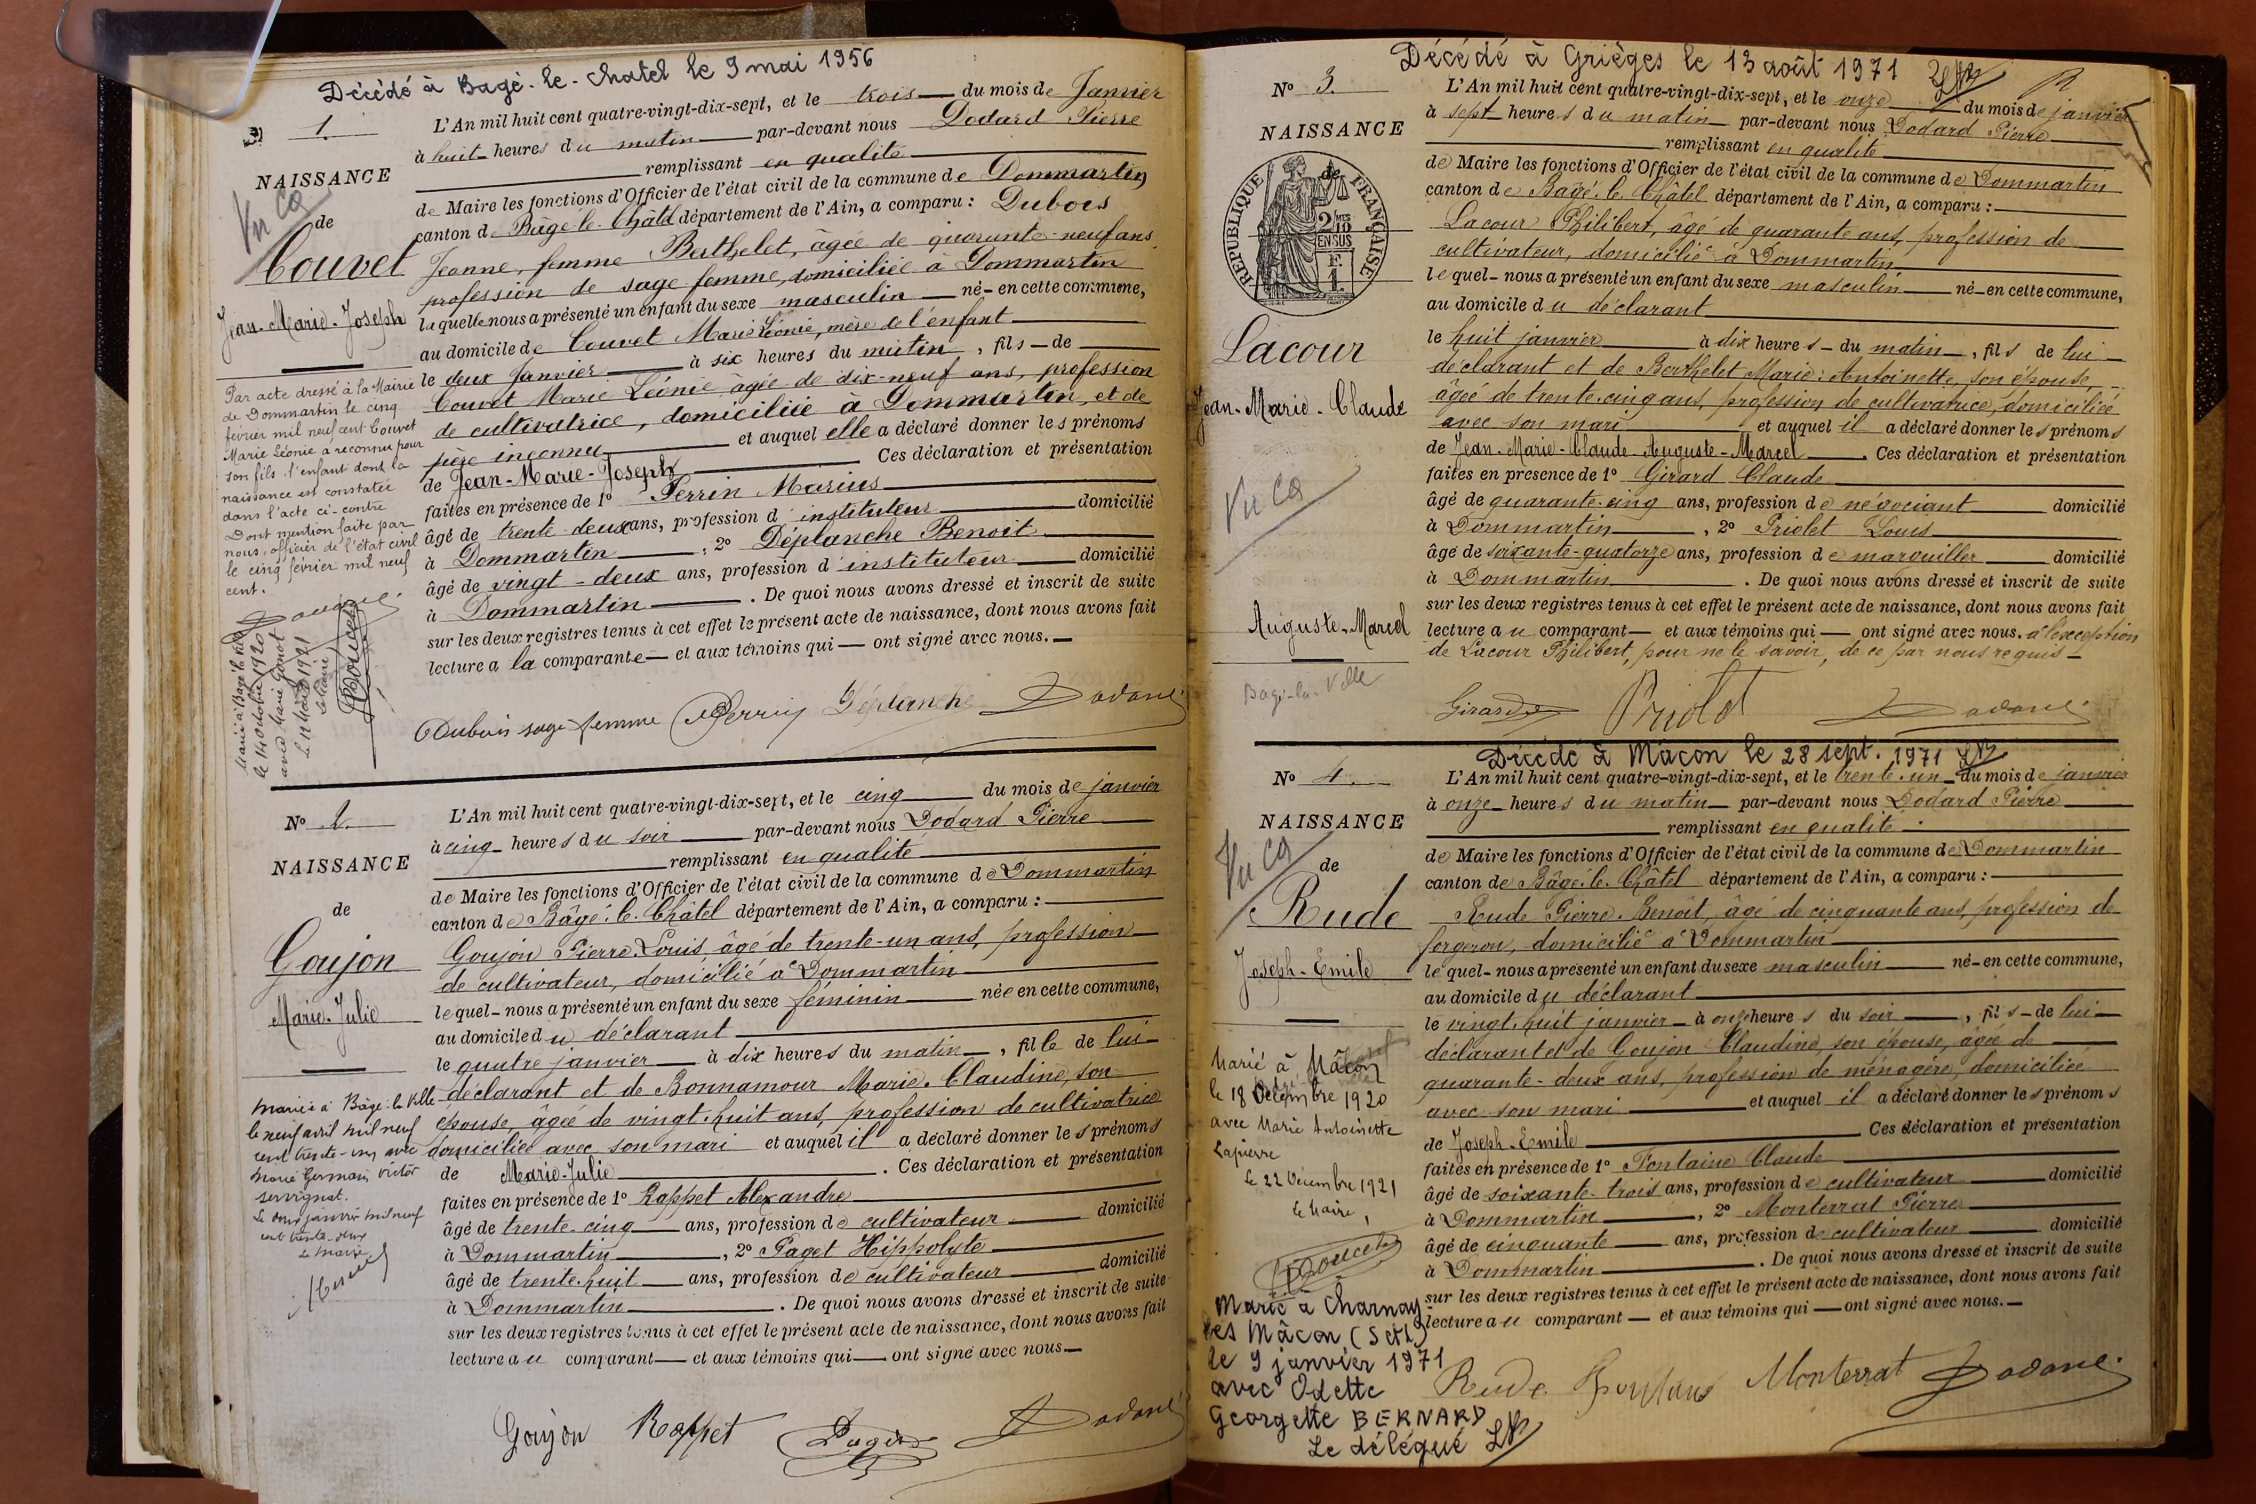 Décédé à Bagé-le-Chatel le 9 mai 1956
1.
NAISSANCE
de
Vu CQ
Couvet
Jean-Marie-Joseph
Par acte dressé à la Mairie
de Dommartin le cinq
février mil neuf cent Couvet
Marie Léonie a reconnu pour
son fils l'enfant dont la
naissance est constatée
dans l'acte ci-contre
Dont mention faite par
nous, officier de l'état civil
le cinq février mil neuf
cent.
Dodard
Marié à Bagé la Ville
le 14 Octobre 1920
avec Marie Gonot
le 12 Mars 1921
Le Maire,
L'An mil huit cent quatre-vingt-dix-sept, et le trois du mois de Janvier
à huit heures du matin par-devant nous Dodard Pierre
remplissant en qualité
de Maire les fonctions d'Officier de l'état civil de la commune de Dommartin
canton de Bâgé-le-Châtel département de l'Ain, a comparu : Dubois
Jeanne, femme Berthelet, âgée de quarante-neuf ans,
profession de sage femme, domiciliée à Dommartin
laquelle nous a présenté un enfant du sexe masculin né en cette commune,
au domicile de Couvet Marie Léonie, mère de l'enfant
le deux Janvier à six heures du matin, fils de
Couvet Marie Léonie âgée de dix-neuf ans, profession
de cultivatrice, domiciliée à Dommartin, et de
père inconnu et auquel elle a déclaré donner les prénoms
de Jean-Marie-Joseph Ces déclaration et présentation
faites en présence de 1º Perrin Marius
âgé de trente deux ans, profession d'instituteur domicilié
à Dommartin, 2º Déplanche Benoit
âgé de vingt-deux ans, profession d'instituteur domicilié
à Dommartin. De quoi nous avons dressé et inscrit de suite
sur les deux registres tenus à cet effet le présent acte de naissance, dont nous avons fait
lecture a la comparante et aux témoins qui ont signé avec nous.
Dubois sage-femme Perrin Déplanche Dodard
Nº 2.
NAISSANCE
de
Goujon
Marie-Julie
Mariée à Bâgé-la-Ville
le neuf avril mil neuf
cent trente-un avec
Marie Germain Victor
Servignat.
Le deux janvier mil neuf
cent trente-deux
Le Maire
L'An mil huit cent quatre-vingt-dix-sept, et le cinq du mois de janvier
à cinq heures du soir par-devant nous Dodard Pierre
remplissant en qualité
de Maire les fonctions d'Officier de l'état civil de la commune de Dommartin
canton de Bâgé-le-Châtel département de l'Ain, a comparu :
Goujon Pierre-Louis âgé de trente-un ans, profession
de cultivateur, domicilié à Dommartin
lequel nous a présenté un enfant du sexe féminin née en cette commune,
au domicile du déclarant
le quatre janvier à dix heures du matin, fille de lui
déclarant et de Bonnamour Marie-Claudine, son
épouse, âgée de vingt-huit ans, profession de cultivatrice
domiciliée avec son mari et auquel il a déclaré donner les prénoms
de Marie-Julie. Ces déclaration et présentation
faites en présence de 1º Rappet Alexandre
âgé de trente-cinq ans, profession de cultivateur domicilié
à Dommartin, 2º Paget Hippolyte
âgé de trente-huit ans, profession de cultivateur domicilié
à Dommartin. De quoi nous avons dressé et inscrit de suite
sur les deux registres tenus à cet effet le présent acte de naissance, dont nous avons fait
lecture au comparant et aux témoins qui ont signé avec nous
Goujon Rappet Paget Dodard
Décédé à Grièges le 13 août 1971
Nº 3.
NAISSANCE
de
RÉPUBLIQUE FRANÇAISE
2/10 EN SUS
F.
1.
Lacour
Jean-Marie-Claude
Vu CQ
Auguste-Marcel
Bagé-la-Ville
L'An mil huit cent quatre-vingt-dix-sept, et le onze du mois de janvier
à sept heures du matin par-devant nous Dodard Pierre
remplissant en qualité
de Maire les fonctions d'Officier de l'état civil de la commune de Dommartin
canton de Bâgé-le-Châtel département de l'Ain, a comparu :
Lacour Philibert, âgé de quarante ans, profession de
cultivateur, domicilié à Dommartin
lequel nous a présenté un enfant du sexe masculin né en cette commune,
au domicile du déclarant
le huit janvier à dix heures du matin, fils de lui
déclarant et de Berthelet Marie-Antoinette, son épouse,
âgée de trente-cinq ans, profession de cultivatrice, domiciliée
avec son mari et auquel il a déclaré donner les prénoms
de Jean-Marie-Claude-Auguste-Marcel. Ces déclaration et présentation
faites en présence de 1º Girard Claude
âgé de quarante-cinq ans, profession de négociant domicilié
à Dommartin, 2º Priolet Louis
âgé de soixante-quatorze ans, profession de marguiller domicilié
à Dommartin. De quoi nous avons dressé et inscrit de suite
sur les deux registres tenus à cet effet le présent acte de naissance, dont nous avons fait
lecture au comparant et aux témoins qui ont signé avec nous. à l'exception
de Lacour Philibert, pour ne le savoir, de ce par nous requis
Girard Priolet Dodard
Décédé à Mâcon le 28 sept. 1971
Nº 4.
NAISSANCE
de
Vu CQ
Rude
Joseph-Emile
Marié à Mâcon
le 18 Décembre 1920
avec Marie Antoinette
Lapierre
Le 22 Décembre 1921
Le Maire,
Marié à Charnay-
les Mâcon (S et L)
le 9 janvier 1971
avec Odette
Georgette BERNARD
Le délégué
L'An mil huit cent quatre-vingt-dix-sept, et le trente-un du mois de janvier
à onze heures du matin par-devant nous Dodard Pierre
remplissant en qualité
de Maire les fonctions d'Officier de l'état civil de la commune de Dommartin
canton de Bâgé-le-Châtel département de l'Ain, a comparu :
Rude Pierre-Benoît, âgé de cinquante ans, profession de
forgeron, domicilié à Dommartin
lequel nous a présenté un enfant du sexe masculin né en cette commune,
au domicile du déclarant
le vingt-huit janvier à onze heures du soir, fils de lui
déclarant et de Goujon Claudine, son épouse, âgée de
quarante-deux ans, profession de ménagère, domiciliée
avec son mari et auquel il a déclaré donner les prénoms
de Joseph-Emile Ces déclaration et présentation
faites en présence de 1º Fontaine Claude
âgé de soixante-trois ans, profession de cultivateur domicilié
à Dommartin, 2º Monterrat Pierre
âgé de cinquante ans, profession de cultivateur domicilié
à Dommartin. De quoi nous avons dressé et inscrit de suite
sur les deux registres tenus à cet effet le présent acte de naissance, dont nous avons fait
lecture au comparant et aux témoins qui ont signé avec nous.
Rude Monterrat Dodard